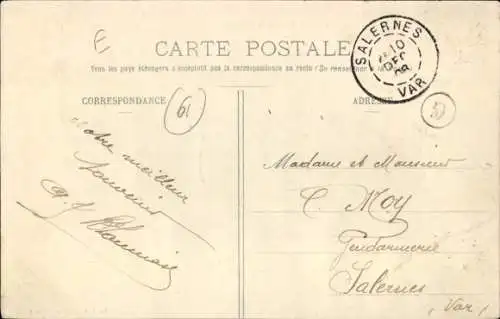 CARTE POSTALE
Tous les pays étrangers n'acceptent pas la correspondance au recto (Se renseigner
CORRESPONDANCE
ADRESSE
SALERNES
10
DEC
08
VAR
61
Notre meilleur
souvenir
Madame et Monsieur
C. Moy
Gendarmerie
Salernes
(Var)